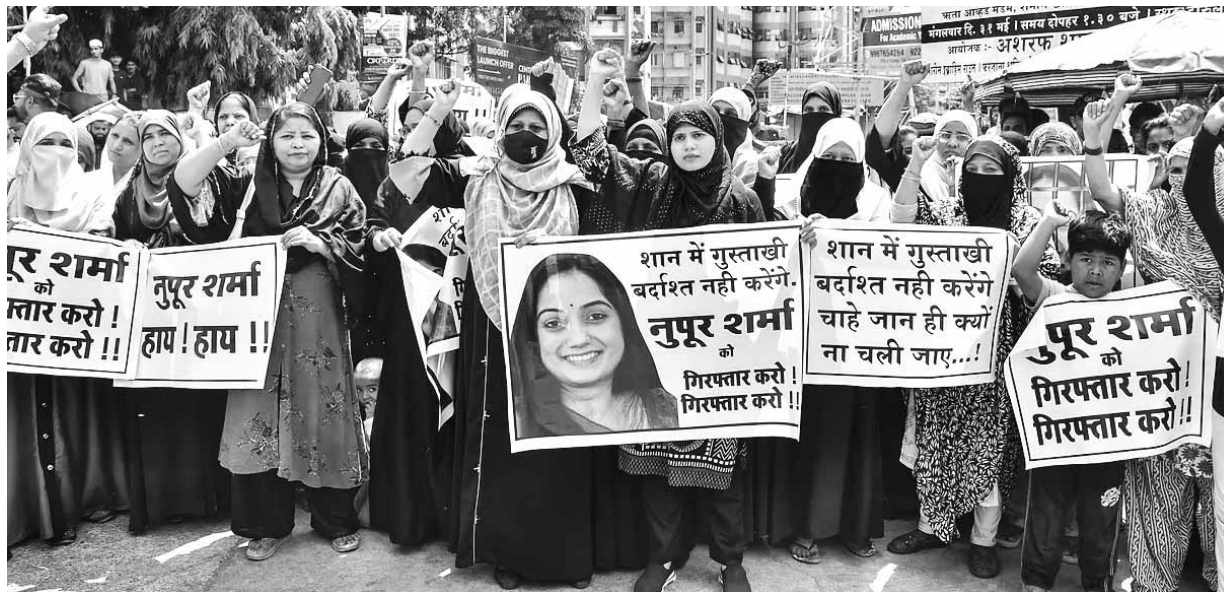 ADMISSION
THE BIGGEST
LAUNCH OFFER
मंगलवार दि. ३१ मई । समय दोपहर १.३० बजे ।
आयोजक :- अशरफ
नुपूर शर्मा
को
करो !
करो !!
नुपूर शर्मा
हाय ! हाय !!
शान में गुस्ताखी
बर्दाश्त नही करेंगे.
नुपूर शर्मा
को
गिरफ्तार करो !
गिरफ्तार करो !!
शान में गुस्ताखी
बर्दाश्त नही करेंगे
चाहे जान ही क्यों
ना चली जाए...!
नुपूर शर्मा
को
गिरफ्तार करो !
गिरफ्तार करो !!